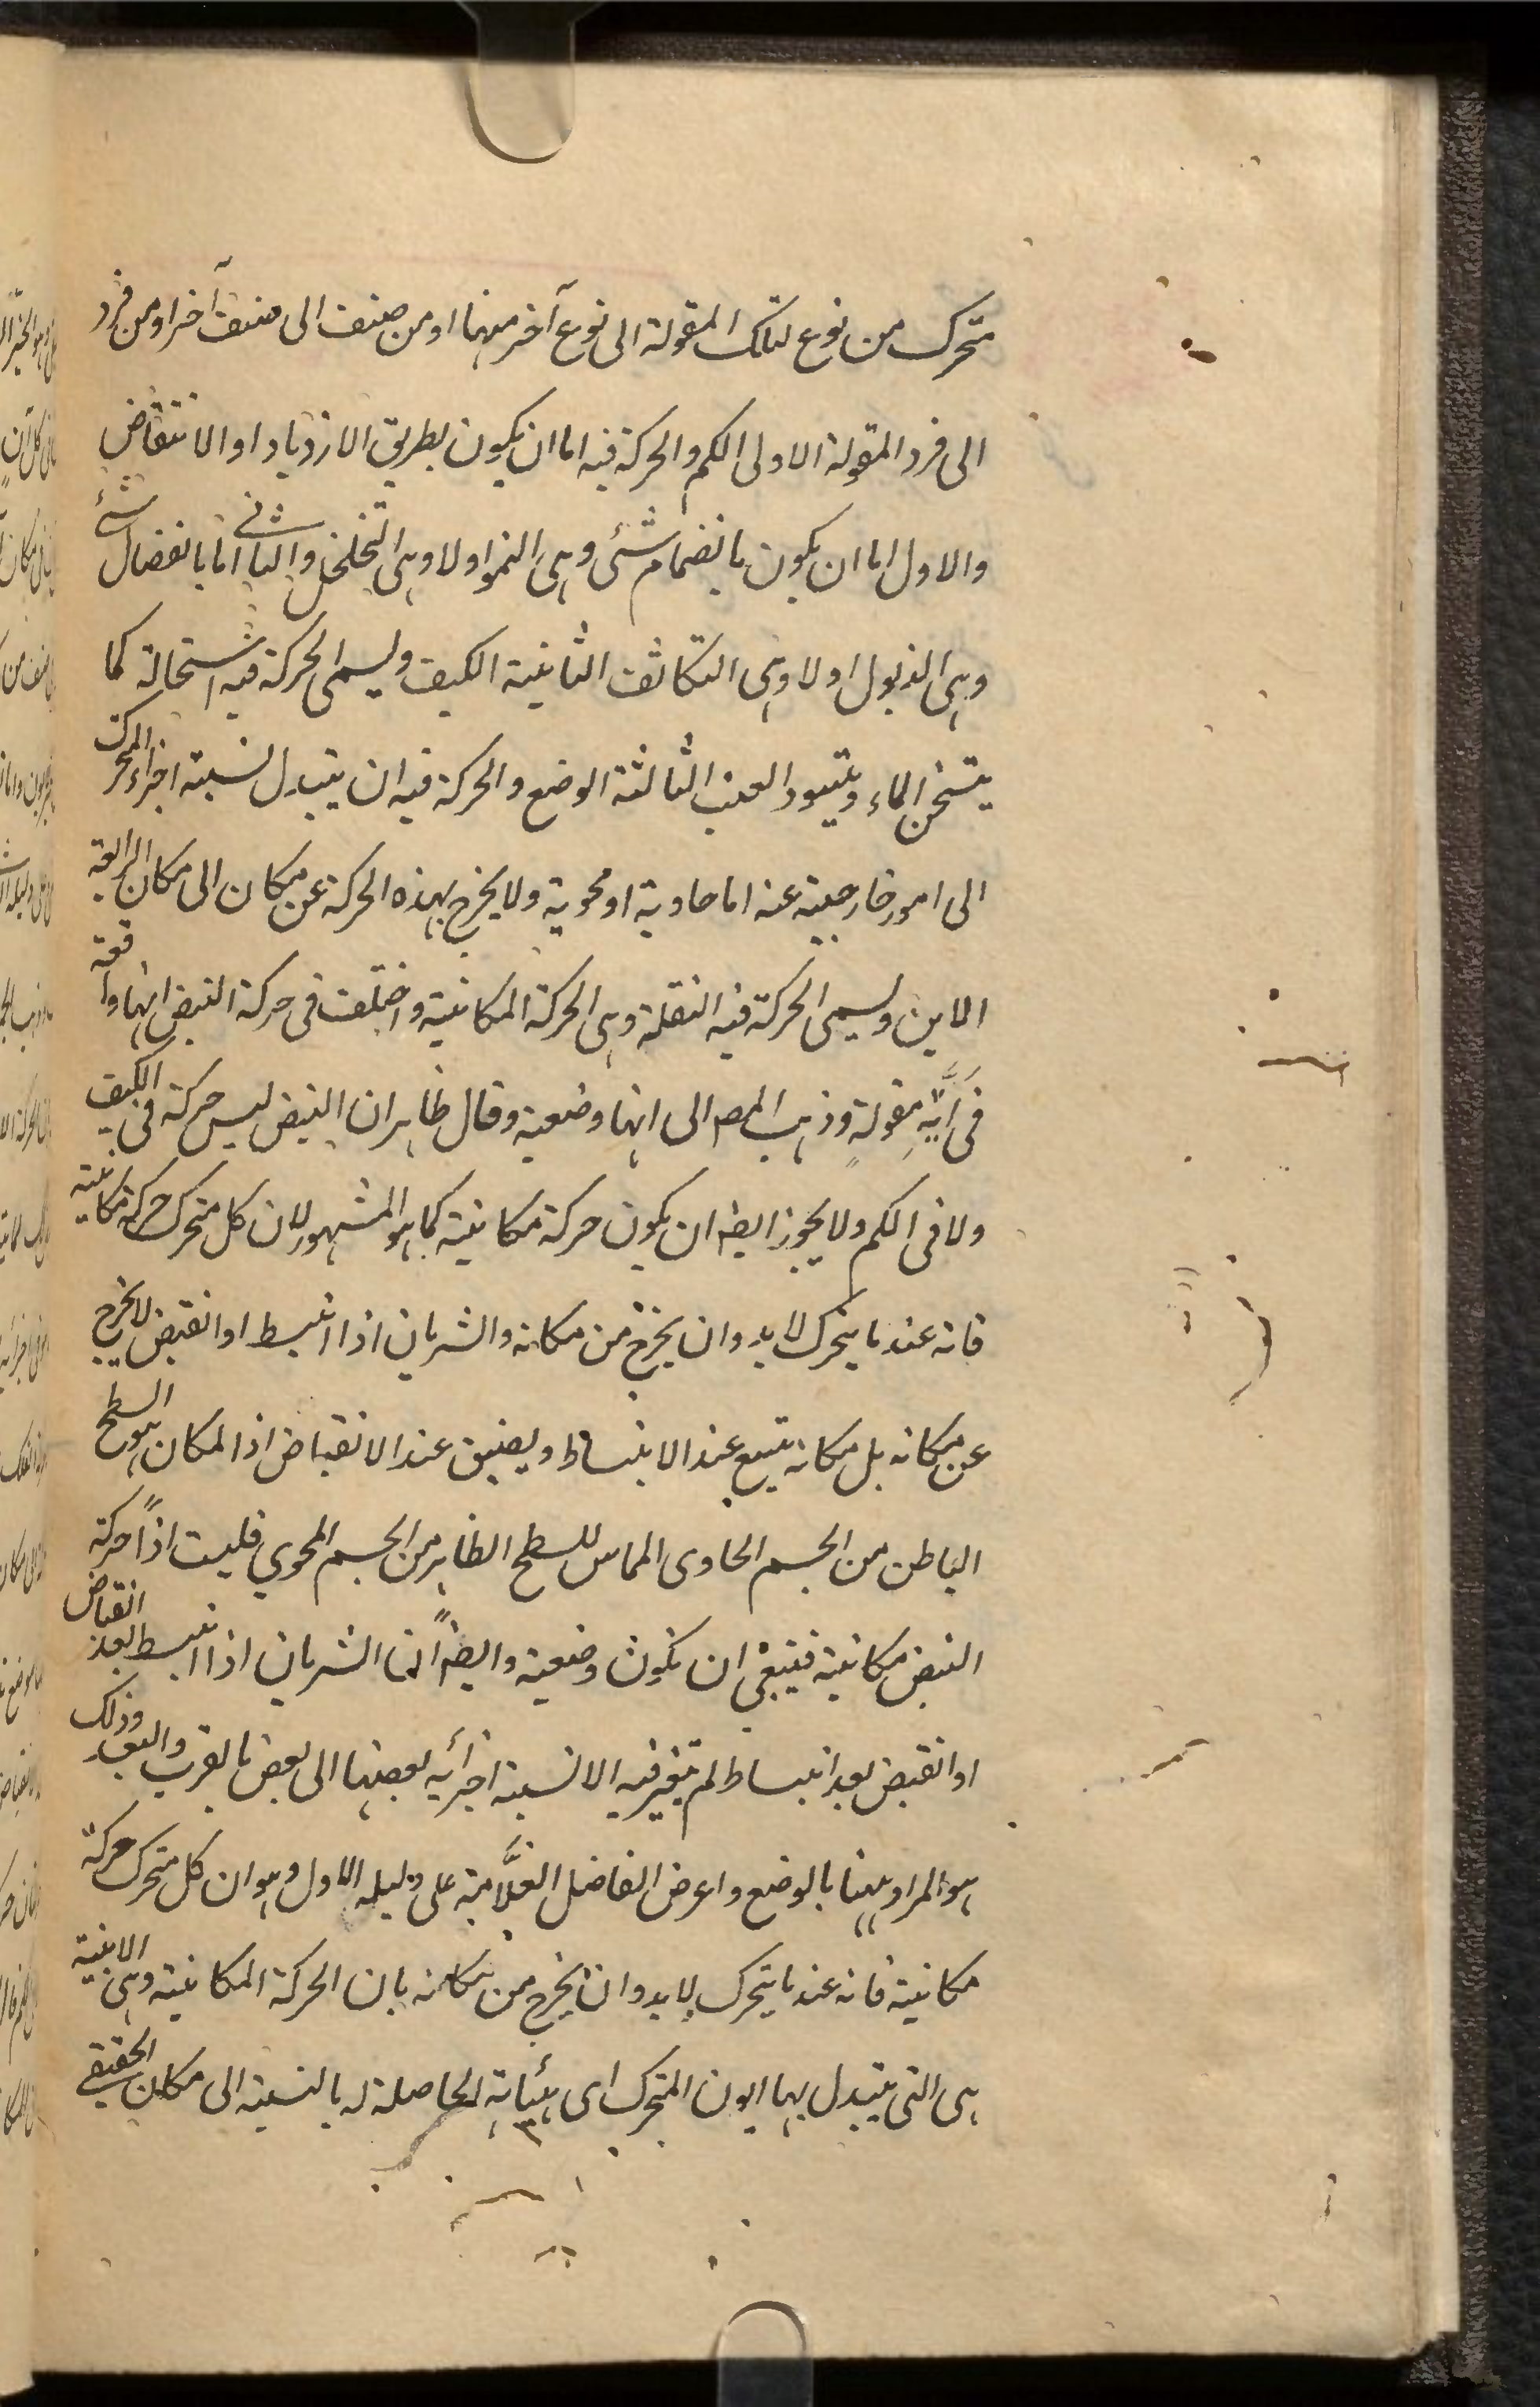 متحرك من نوع لتلك المقولة الى نوع آخر منهما او من صنف الى صنف آخر او من فرد
الى فرد المقولة الاولى الكم والحركة فيه اما ان يكون بطريق الازدياد او الانتقاض
والاول اما ان يكون بانضمام شئ وهى النمو اولا وهى التخلخل والثانى اما بانفصال شئ
وهى الذبول اولا وهى التكاثف الثانية الكيف ويسمى الحركة فيه استحالة كما
يتسخن الماء ويتسود العنب الثالثة الوضع والحركة فيه ان يتبدل نسبة اجزاء المتحرك
الى امور خارجية عنه اما حاوية او محوية ولا يخرج بهذه الحركة عن مكان الى مكان الرابعة
الاين ويسمى الحركة فيه النقلة وهى الحركة المكانية واختلف فى حركة النبض انها واقعة
فى اَيَّةِ مقولةٍ وذهب المص الى انها وضعية وقال ظاهر ان النبض ليس حركة فى الكيف
ولا فى الكم ولا يجوز ايضا ان يكون حركة مكانية كما هو المشهور لان كل متحرك حركة مكانية
فانه عندما يتحرك لا بد وان يخرج من مكانه والشريان اذا انبسط او انقبض لا يخرج
عن مكانه بل مكانه يتسع عند الانبساط ويضيق عند الانقباض اذ المكان هو السطح
الباطن من الجسم الحاوى المماس للسطح الظاهر من الجسم المحوي فليست اذاً حركة
النبض مكانية فينبغى ان تكون وضعية وايضاً انما الشريان اذا انبسط بعد انقباض
او انقبض بعد انبساط لم يتغير فيه الا نسبة اجزائه بعضها الى بعض بالقرب والبعد وذلك
هو المراد ههنا بالوضع واعرض الفاضل العلَّامة على دليله الاول وهو ان كل متحرك حركة
مكانية فانه عندما يتحرك لا بد وان يخرج من مكانه بان الحركة المكانية وهى الاينية
هى التى يتبدل بها ايون المتحرك اى هيئاته الحاصلة له بالنسبة الى مكان الحقيقى